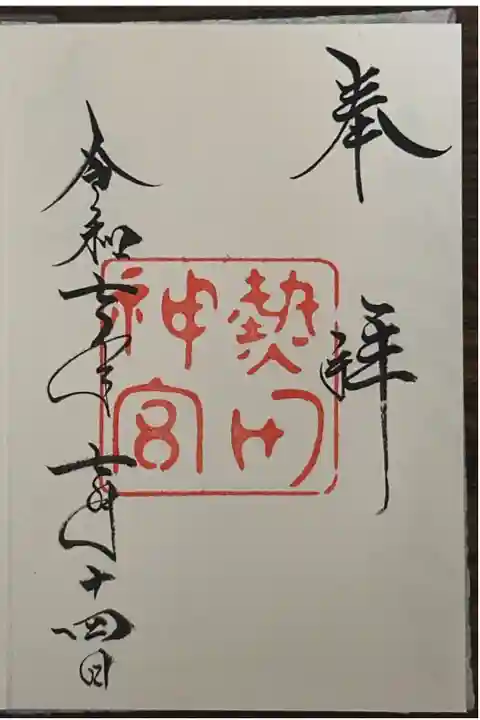 奉拝
熱田
神宮
令和六年六月十四日